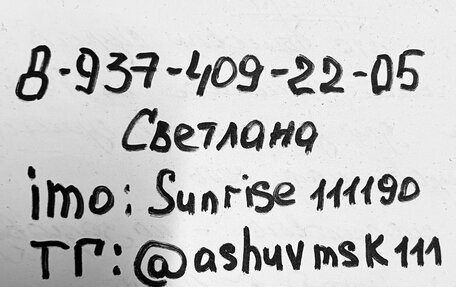 8-937-409-22-05
Светлана
imo: Sunrise 111190
ТГ: @ashuvmsk111